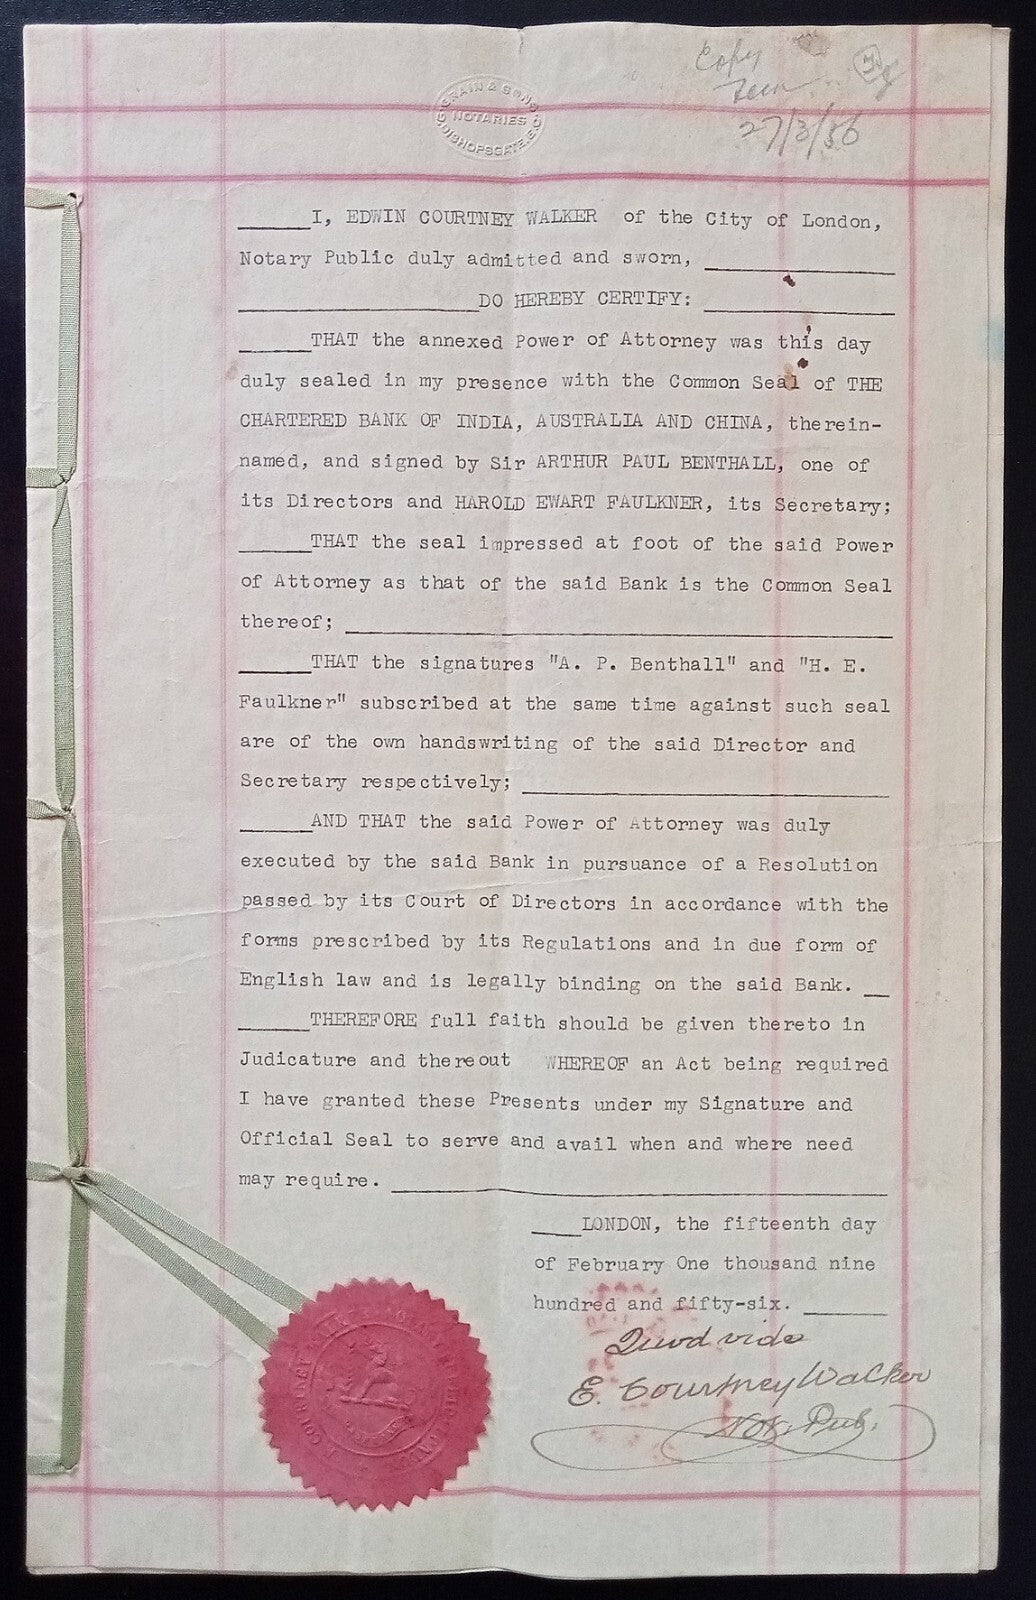 Copy
27/3/56
GRAIN & SONS
NOTARIES
BISHOPSGATE, E.C.
I, EDWIN COURTNEY WALKER of the City of London,
Notary Public duly admitted and sworn,
DO HEREBY CERTIFY:
THAT the annexed Power of Attorney was this day
duly sealed in my presence with the Common Seal of THE
CHARTERED BANK OF INDIA, AUSTRALIA AND CHINA, therein-
named, and signed by Sir ARTHUR PAUL BENTHALL, one of
its Directors and HAROLD EWART FAULKNER, its Secretary;
THAT the seal impressed at foot of the said Power
of Attorney as that of the said Bank is the Common Seal
thereof;
THAT the signatures "A. P. Benthall" and "H. E.
Faulkner" subscribed at the same time against such seal
are of the own handswriting of the said Director and
Secretary respectively;
AND THAT the said Power of Attorney was duly
executed by the said Bank in pursuance of a Resolution
passed by its Court of Directors in accordance with the
forms prescribed by its Regulations and in due form of
English law and is legally binding on the said Bank.
THEREFORE full faith should be given thereto in
Judicature and thereout WHEREOF an Act being required
I have granted these Presents under my Signature and
Official Seal to serve and avail when and where need
may require.
LONDON, the fifteenth day
of February One thousand nine
hundred and fifty-six.
Quod vide
E. Courtney Walker
Not. Pub.